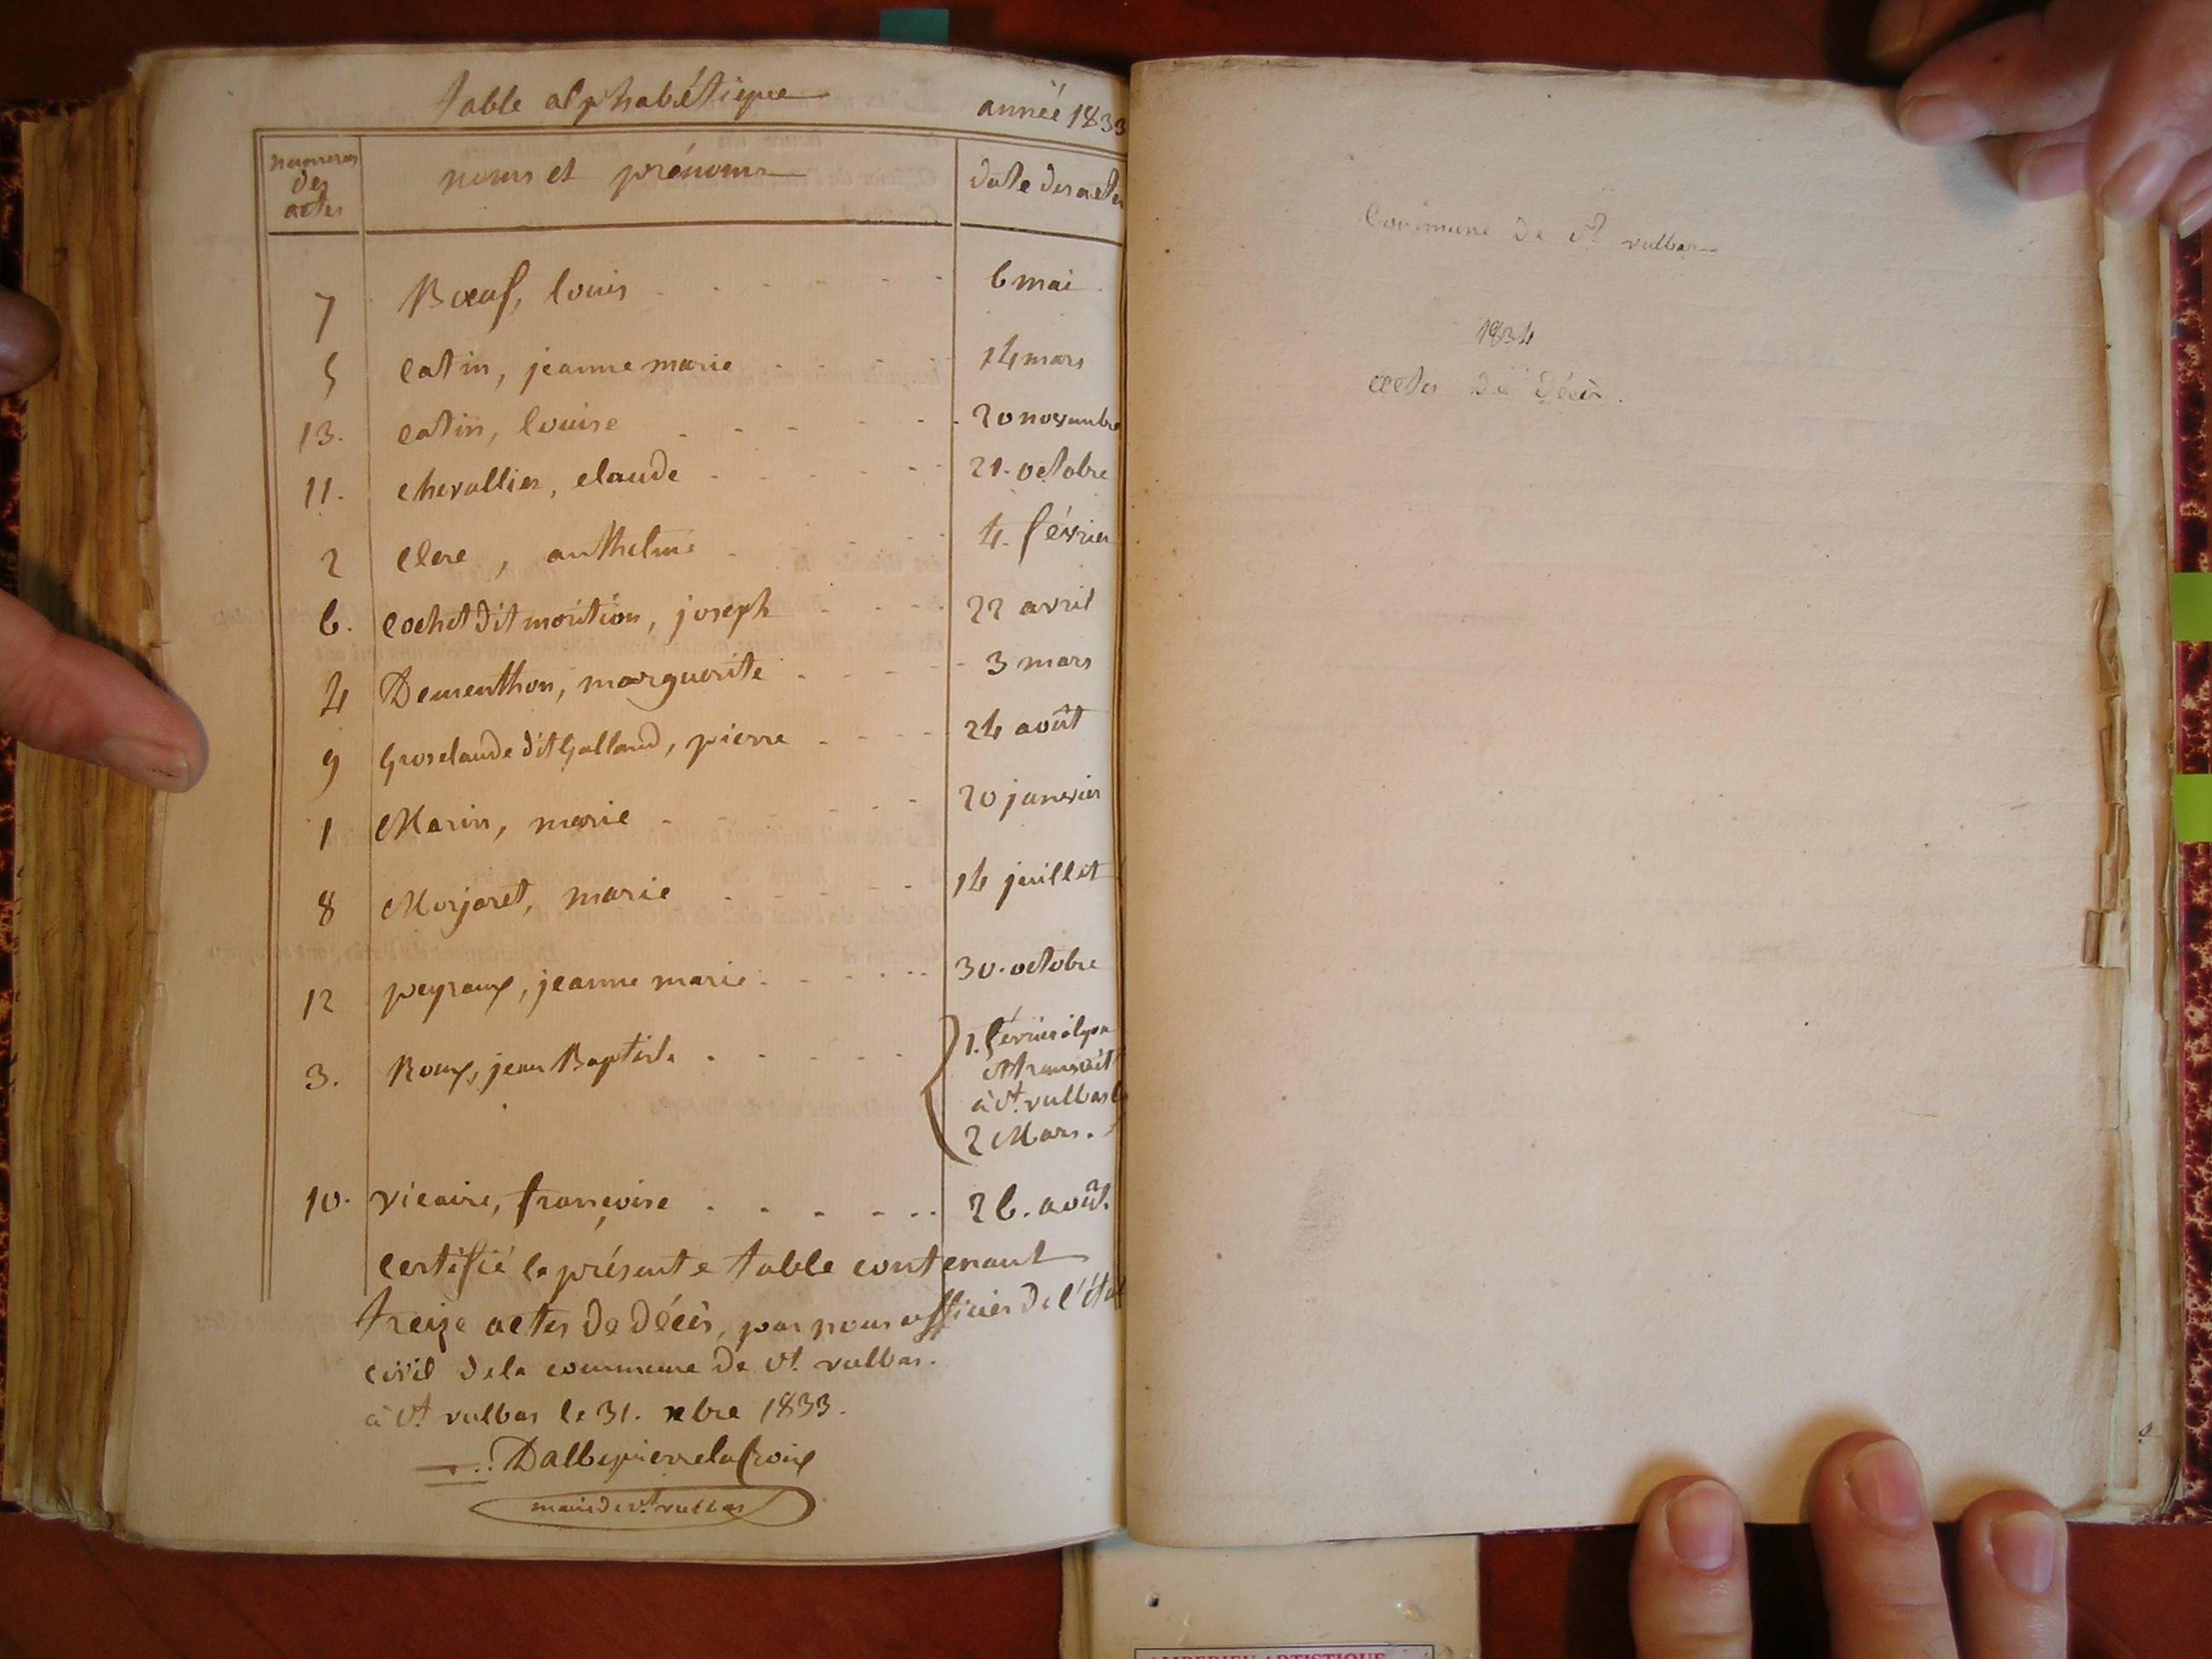 table alphabétique année 1833
numeros des actes noms et prénoms date des actes
7 Bœuf, louis 6 mai
5 catin, jeanne marie 14 mars
13. catin, louise 20 novembre
11. chevallier, claude 21. octobre
2 Clere, anthelme 4. février
6. cochet dit morition, joseph 22 avril
4 Dementhon, marguerite 3 mars
9 Grosclaude dit Galland, pierre 24 août
1 Marin, marie 20 janvier
8 Morjaret, marie 14 juillet
12 peyraux, jeanne marie 30. octobre
3. Roux, jean Baptiste 1. février à lyon
et transcrit
à st. vulbas le
2 Mars.
10. vicaire, françoise 26. août.
certifié la présente table contenant
treize actes de décès, par nous officier de l'état
civil de la commune de st. vulbas.
à st vulbas le 31. xbre 1833.
Dallepierrelacroix
maire de st. vulbas
Commune de st vulbas
1834
actes de décès.
AMBERIEU ARTISTIQUE